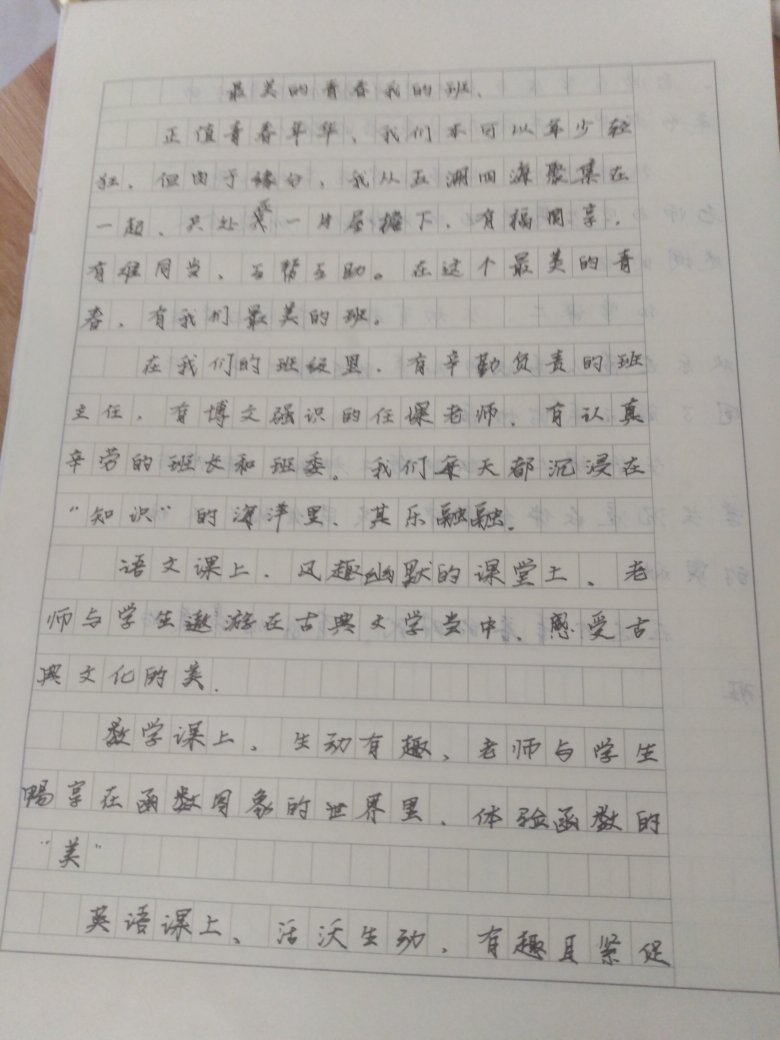 最美的青春我的班、
正值青春年华、我们本可以年少轻
狂、但由于缘分、我从五湖四海聚集在
一起、共处在一片屋檐下、有福同享、
有难同当、互帮互助。在这个最美的青
春、有我们最美的班。
在我们的班级里、有辛勤负责的班
主任、有博文强识的任课老师、有认真
辛劳的班长和班委。我们每天都沉浸在
“知识”的海洋里、其乐融融.
语文课上、风趣幽默的课堂上、老
师与学生遨游在古典文学当中、感受古
典文化的美.
数学课上、生动有趣、老师与学生
畅享在函数图象的世界里、体验函数的
“美”
英语课上、活沃生动、有趣且紧促